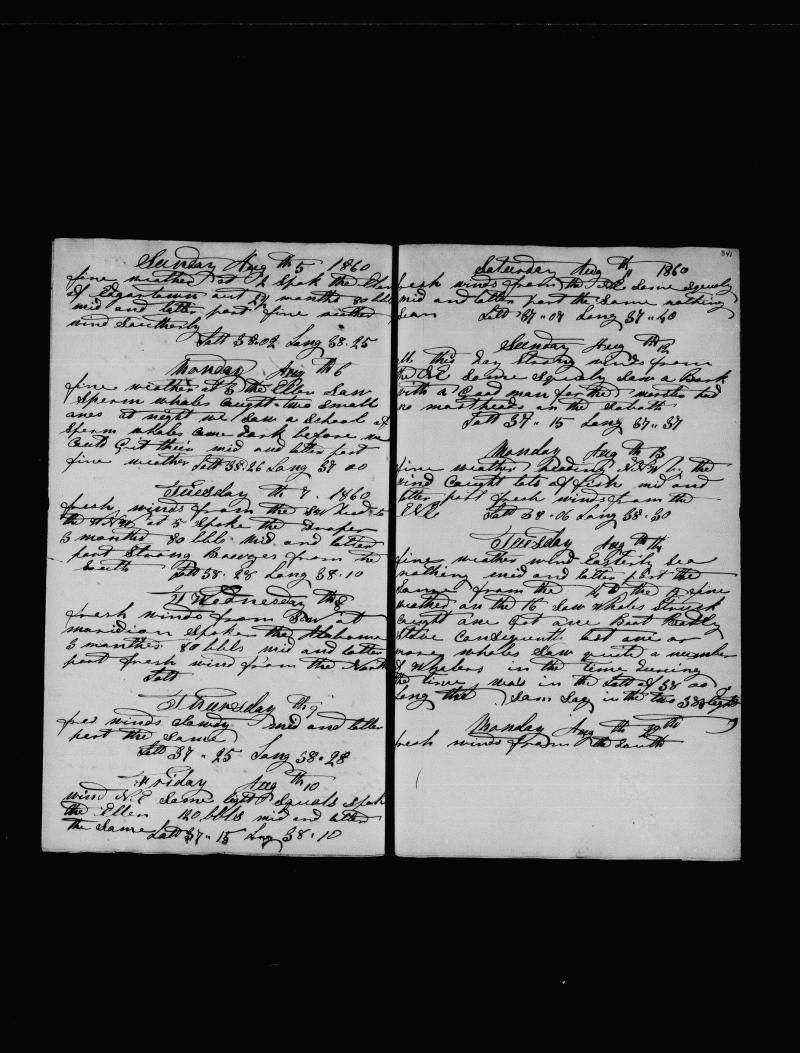 Sunday Aug th 5 1860
fine weather at 2 Spok the
of Edgartown out 27 months 80 bbls
mid and latter part fine weather
wind Southerly
Latt 38.02 Long 38.25
Monday Aug th 6
fine weather at 3 the Ellen Saw
Sperm whales Caught two Small
ones at night we Saw a School of
Sperm whales Came dark before we
Could Get their mid and latter part
fine weather Latt 38.26 Long 37 00
Tuesday th 7. 1860
fresh winds from the SW
the at 5 Spoke the Draper
3 months 80 bbls mid and latter
part Strong Breezes from the
South Latt 38.28 Long 38.10
Wednesday th 8
fresh winds from SW at
maridian Spoke the Alabama
3 monthes 80 bbls mid and latter
part fresh wind from the North
Latt
Thursday th 9
winds mid and latter
part the Same
Latt 37 " 25 Long 38.28
Friday Aug th 10
wind N.E Some light Squals Spok
the Ellen 120 bbls mid and latter
the Same Latt 37 " 15 Long 38.10
341
Saturday Aug th 11 1860
fresh winds from the NE Some Squaly
mid and latter part the Same nothing
Sean Latt 37 " 07 Long 37 " 40
Sunday Aug th 12
this day Strong winds from
the NE Some Squaly Saw a Bark
with a Good man for the had
no mastheads on the Sabath
Latt 37 " 15 Long 37 " 37
Monday Aug th 13
fine weather heading the
wind Caught lots of fish mid and
latter part fresh winds from the
Latt 38.06 Long 38.30
Tuesday Aug th 14
fine weather wind Easterly See
nothing mid and latter part the
Same from the 14 to the fine
weather on the 16 Saw whales Struck
Caught one Got one Boat Badly
Stove Consequent lost one or
more whales Saw quite a number
of Whalers in the time During
the time was in the Latt of 38 00
Long the Same in the two 38
Monday Aug th
fresh winds from the South